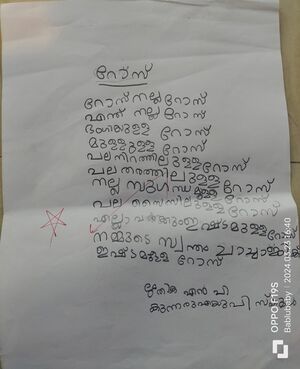 റോസ്
റോസ് നല്ല റോസ്
എന്ത് നല്ല റോസ്
ഭംഗിയുള്ള റോസ്
മുള്ളുള്ള റോസ്
പല നിറത്തിലുള്ള റോസ്
പല തരത്തിലുള്ള
നല്ല സുഗന്ധമുള്ള റോസ്
പല സൈസിലുള്ള റോസ്
എല്ലാവർക്കും ഇഷ്ടമുള്ള റോസ്
നമ്മുടെ സ്വന്തം ചാച്ചാജിക്ക്
ഇഷ്ടമുള്ള റോസ്
എൻ പി
കുന്നരു
OPPO F19S
Bablubaby | 2024.03.23 16:40